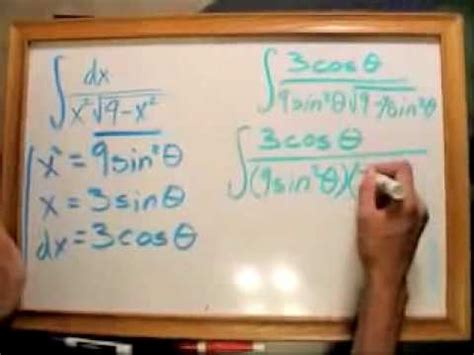 ∫ dx / x²√9-x²
x² = 9sin²θ
x = 3sinθ
dx = 3cosθ
∫ 3cosθ / 9sin²θ√9-9sin²θ
∫ 3cosθ / (9sin²θ)(